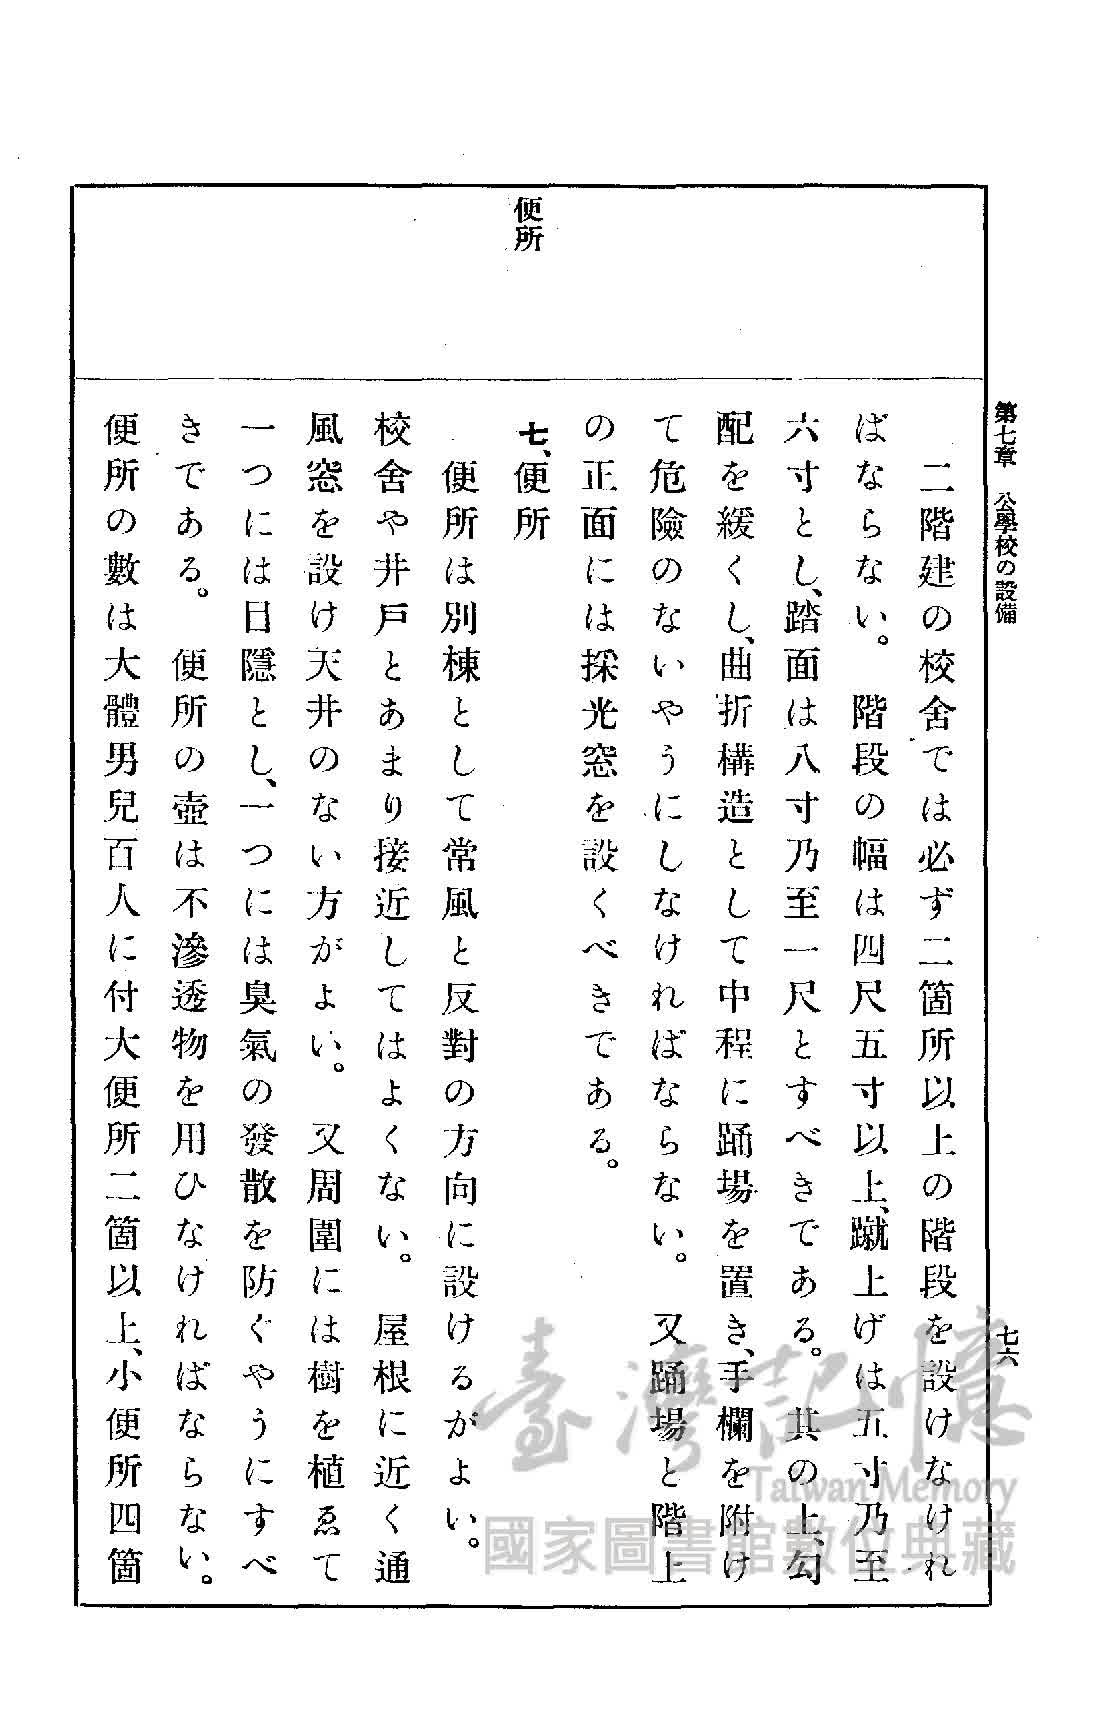 第七章 公學校の設備
七六
便所
二階建の校舍では必ず二箇所以上の階段を設けなけれ
ばならない。 階段の幅は四尺五寸以上、蹴上げは五寸乃至
六寸とし、踏面は八寸乃至一尺とすべきである。 其の上、勾
配を緩くし、曲折構造として中程に踊場を置き、手欄を附け
て危險のないやうにしなければならない。 又踊場と階上
の正面には採光窓を設くべきである。
七、便所
便所は別棟として常風と反對の方向に設けるがよい。
校舍や井戸とあまり接近してはよくない。 屋根に近く通
風窓を設け天井のない方がよい。 又周圍には樹を植ゑて
一つには目隱とし、一つには臭氣の發散を防ぐやうにすべ
きである。 便所の壺は不滲透物を用ひなければならない。
便所の數は大體男兒百人に付大便所二箇以上、小便所四箇
臺灣記憶
Taiwan Memory
國家圖書館數位典藏